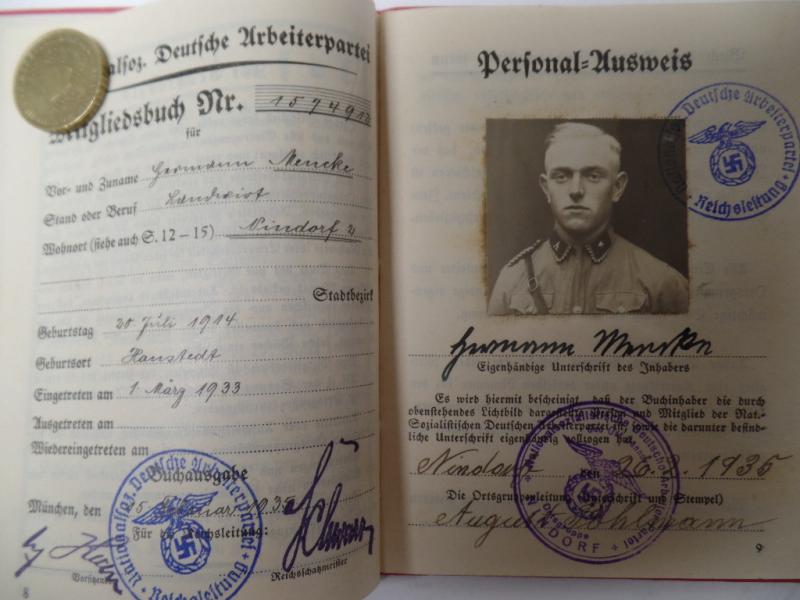 Deutsche Arbeiterpartei
Mitgliedsbuch Nr. 1574912
für
Vor- und Zuname Hermann Mencke
Stand oder Beruf Landwirt
Wohnort (siehe auch S. 12–15) Nindorf 2
Stadtbezirk
Geburtstag 20 Juli 1914
Geburtsort Hanstedt
Eingetreten am 1 März 1933
Ausgetreten am
Wiedereingetreten am
Buchausgabe
München, den 15 1935
Für die Reichsleitung:
Reichsschatzmeister
8
Nationalsoz. Deutsche Arbeiterpartei
Reichsleitung
Personal-Ausweis
Deutsche Arbeiterpartei
Reichsleitung
Hermann Mencke
Eigenhändige Unterschrift des Inhabers
Es wird hiermit bescheinigt, daß der Buchinhaber die durch
obenstehendes Lichtbild dargestellte Person und Mitglied der Nat.-
Sozialistischen Deutschen Arbeiterpartei ist, sowie die darunter befind-
liche Unterschrift eigenhändig vollzogen hat.
Nindorf den 26. 2. 1935
Die Ortsgruppenleitung (Unterschrift und Stempel)
August Pohlmann
Ortsgruppe
NINDORF
9